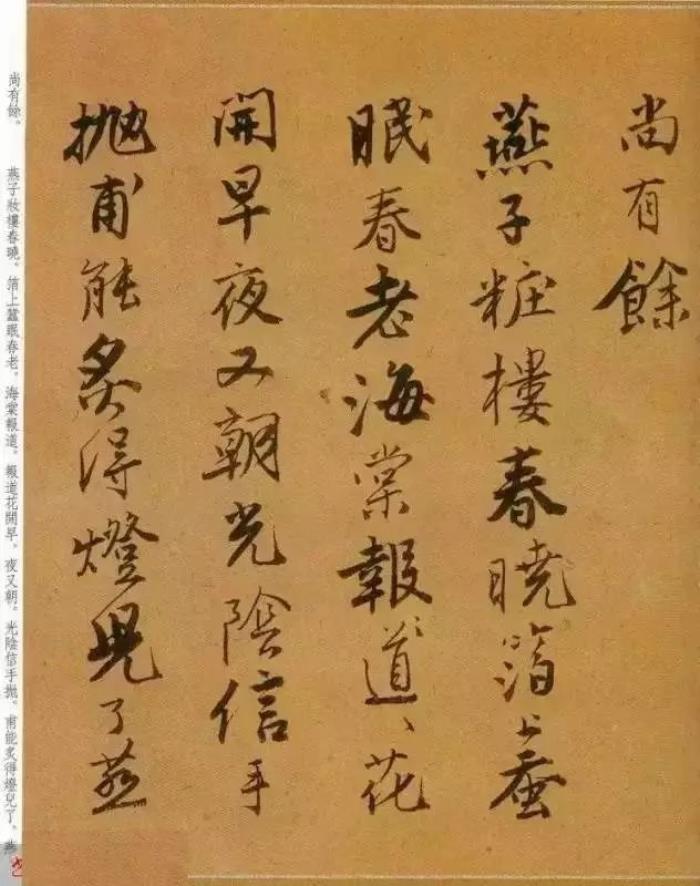 尚有餘
燕子粧樓春曉箔上蚕
眠春老海棠報道、花
開早夜又朝光陰信手
抛甫能炙得燈兒了燕
尚有餘。　燕子妝樓春曉。箔上蠶眠春老。海棠報道。報道花開早。夜又朝。光陰信手抛。甫能炙得燈兒了。燕